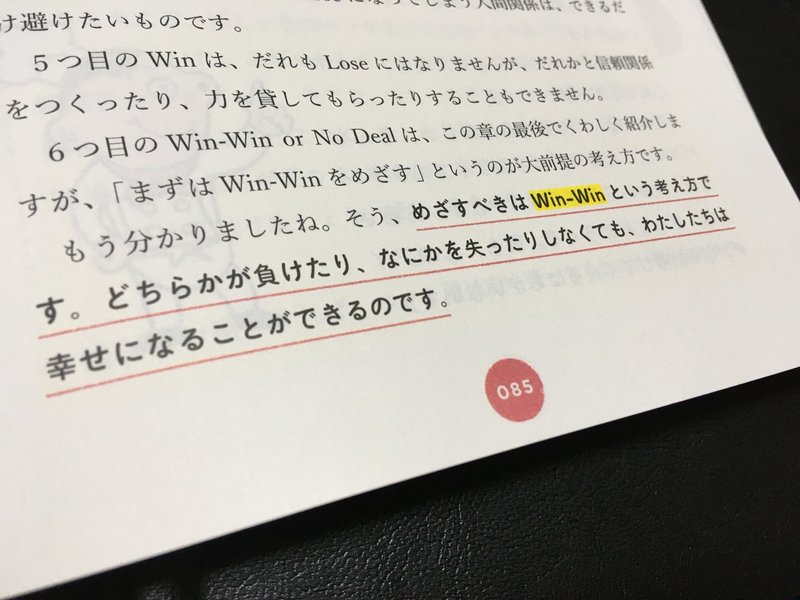 なってしまう人間関係は、できるだ
け避けたいものです。
5つ目の Win は、だれも Lose にはなりませんが、だれかと信頼関係
をつくったり、力を貸してもらったりすることもできません。
6つ目の Win-Win or No Deal は、この章の最後でくわしく紹介しま
すが、「まずは Win-Win をめざす」というのが大前提の考え方です。
もう分かりましたね。そう、めざすべきは Win-Win という考え方で
す。どちらかが負けたり、なにかを失ったりしなくても、わたしたちは
幸せになることができるのです。
085